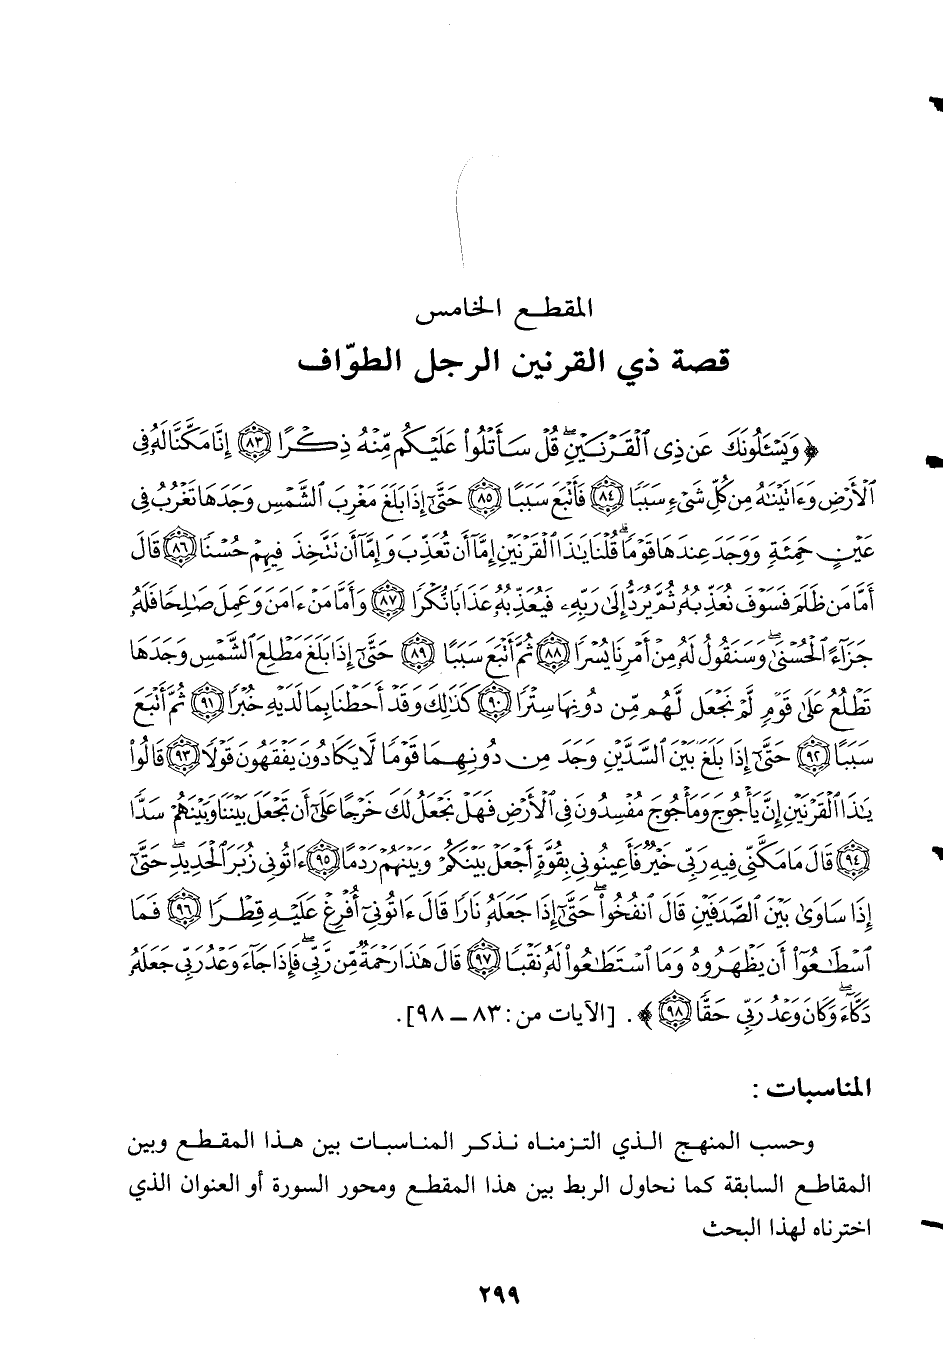 المقطع الخامس
قصة ذي القرنين الرجل الطوّاف
﴿ وَيَسْـَٔلُونَكَ عَن ذِى ٱلْقَرْنَيْنِ ۖ قُلْ سَأَتْلُوا۟ عَلَيْكُم مِّنْهُ ذِكْرًا ﴿٨٣﴾ إِنَّا مَكَّنَّا لَهُۥ فِى
ٱلْأَرْضِ وَءَاتَيْنَـٰهُ مِن كُلِّ شَىْءٍ سَبَبًا ﴿٨٤﴾ فَأَتْبَعَ سَبَبًا ﴿٨٥﴾ حَتَّىٰٓ إِذَا بَلَغَ مَغْرِبَ ٱلشَّمْسِ وَجَدَهَا تَغْرُبُ فِى
عَيْنٍ حَمِئَةٍ وَوَجَدَ عِندَهَا قَوْمًا ۗ قُلْنَا يَـٰذَا ٱلْقَرْنَيْنِ إِمَّآ أَن تُعَذِّبَ وَإِمَّآ أَن تَتَّخِذَ فِيهِمْ حُسْنًا ﴿٨٦﴾ قَالَ
أَمَّا مَن ظَلَمَ فَسَوْفَ نُعَذِّبُهُۥ ثُمَّ يُرَدُّ إِلَىٰ رَبِّهِۦ فَيُعَذِّبُهُۥ عَذَابًا نُّكْرًا ﴿٨٧﴾ وَأَمَّا مَنْ ءَامَنَ وَعَمِلَ صَـٰلِحًا فَلَهُۥ
جَزَآءً ٱلْحُسْنَىٰ ۖ وَسَنَقُولُ لَهُۥ مِنْ أَمْرِنَا يُسْرًا ﴿٨٨﴾ ثُمَّ أَتْبَعَ سَبَبًا ﴿٨٩﴾ حَتَّىٰٓ إِذَا بَلَغَ مَطْلِعَ ٱلشَّمْسِ وَجَدَهَا
تَطْلُعُ عَلَىٰ قَوْمٍ لَّمْ نَجْعَل لَّهُم مِّن دُونِهَا سِتْرًا ﴿٩٠﴾ كَذَٰلِكَ وَقَدْ أَحَطْنَا بِمَا لَدَيْهِ خُبْرًا ﴿٩١﴾ ثُمَّ أَتْبَعَ
سَبَبًا ﴿٩٢﴾ حَتَّىٰٓ إِذَا بَلَغَ بَيْنَ ٱلسَّدَّيْنِ وَجَدَ مِن دُونِهِمَا قَوْمًا لَّا يَكَادُونَ يَفْقَهُونَ قَوْلًا ﴿٩٣﴾ قَالُوا۟
يَـٰذَا ٱلْقَرْنَيْنِ إِنَّ يَأْجُوجَ وَمَأْجُوجَ مُفْسِدُونَ فِى ٱلْأَرْضِ فَهَلْ نَجْعَلُ لَكَ خَرْجًا عَلَىٰٓ أَن تَجْعَلَ بَيْنَنَا وَبَيْنَهُمْ سَدًّا
﴿٩٤﴾ قَالَ مَا مَكَّنِّى فِيهِ رَبِّى خَيْرٌ فَأَعِينُونِى بِقُوَّةٍ أَجْعَلْ بَيْنَكُمْ وَبَيْنَهُمْ رَدْمًا ﴿٩٥﴾ ءَاتُونِى زُبَرَ ٱلْحَدِيدِ ۖ حَتَّىٰٓ
إِذَا سَاوَىٰ بَيْنَ ٱلصَّدَفَيْنِ قَالَ ٱنفُخُوا۟ ۖ حَتَّىٰٓ إِذَا جَعَلَهُۥ نَارًا قَالَ ءَاتُونِىٓ أُفْرِغْ عَلَيْهِ قِطْرًا ﴿٩٦﴾ فَمَا
ٱسْطَـٰعُوٓا۟ أَن يَظْهَرُوهُ وَمَا ٱسْتَطَـٰعُوا۟ لَهُۥ نَقْبًا ﴿٩٧﴾ قَالَ هَـٰذَا رَحْمَةٌ مِّن رَّبِّى ۖ فَإِذَا جَآءَ وَعْدُ رَبِّى جَعَلَهُۥ
دَكَّآءَ ۖ وَكَانَ وَعْدُ رَبِّى حَقًّا ﴿٩٨﴾ ﴾. [الآيات من: ٨٣ ــ ٩٨].
المناسبات :
وحسب المنهج الذي التزمناه نذكر المناسبات بين هذا المقطع وبين
المقاطع السابقة كما نحاول الربط بين هذا المقطع ومحور السورة أو العنوان الذي
اخترناه لهذا البحث
٢٩٩